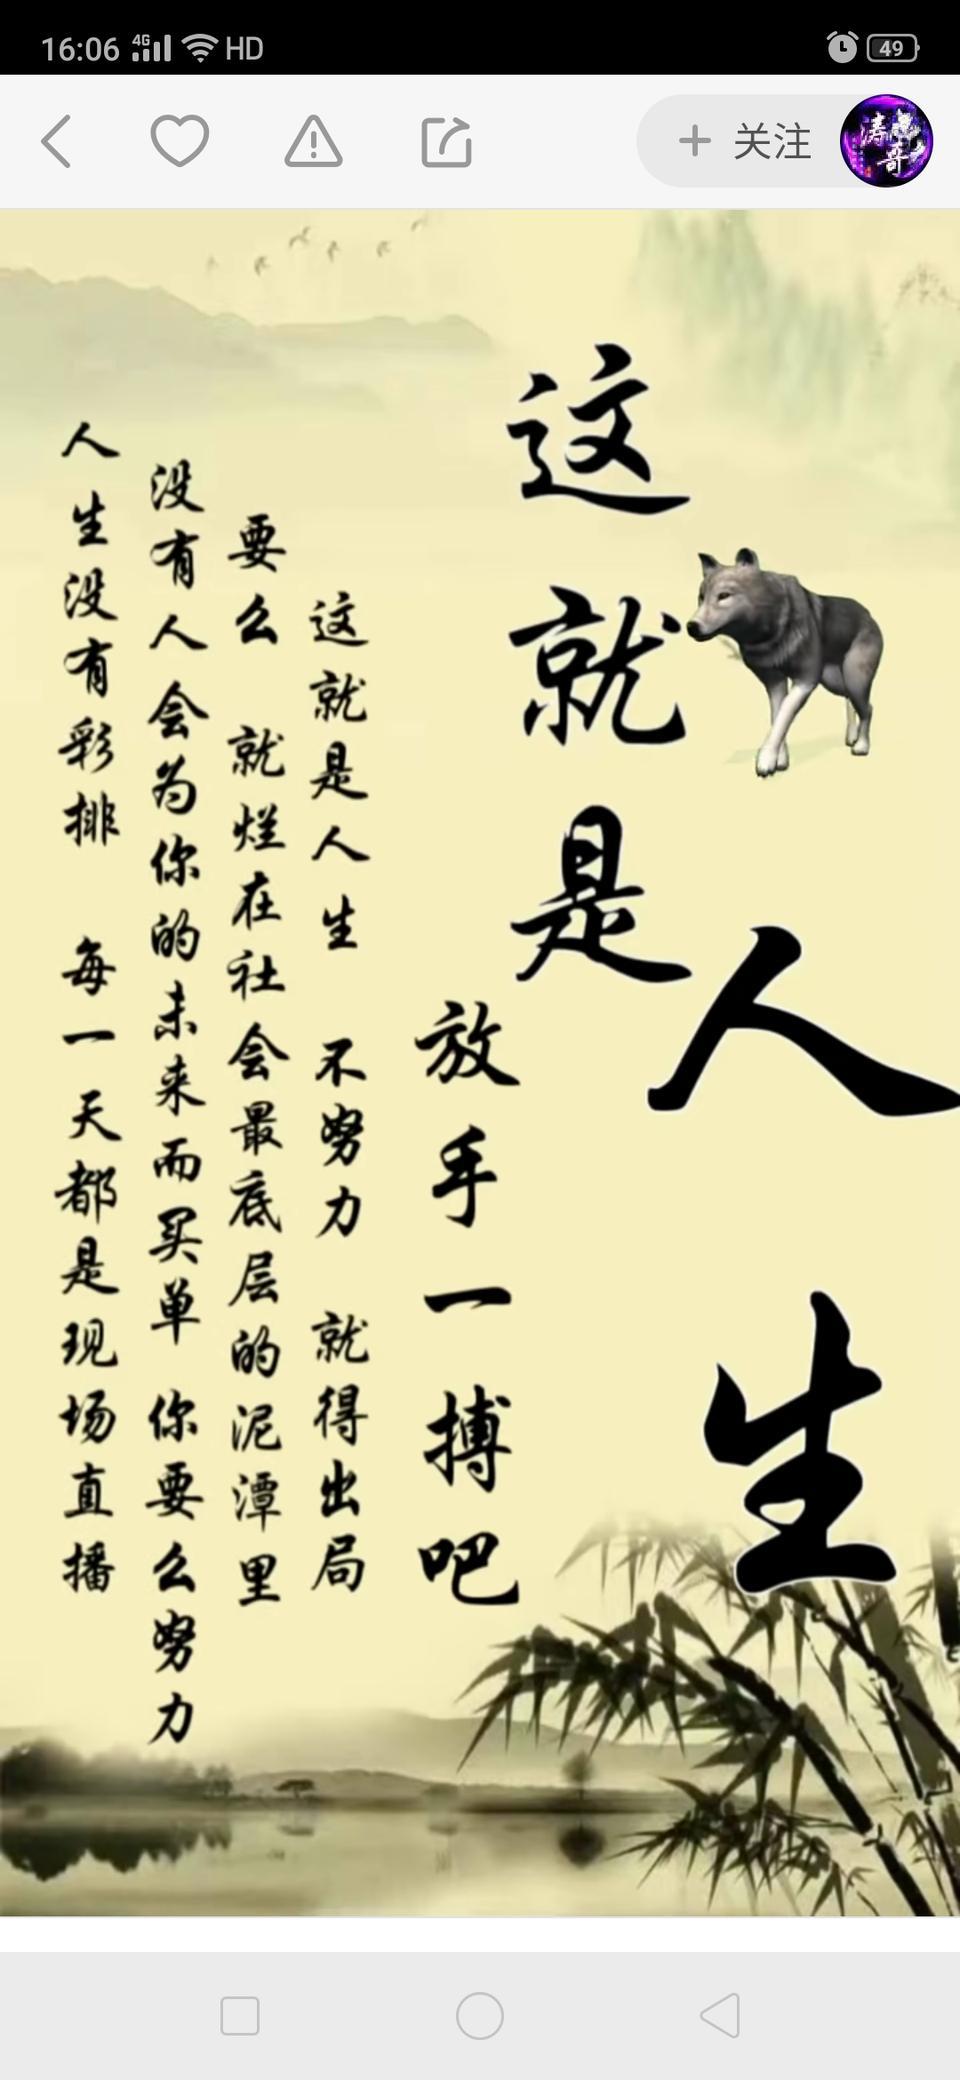 16:06 4G HD 49
+ 关注
涛哥
这就是
人生
人生没有彩排 每一天都是现场直播
没有人会为你的未来而买单 你要么努力
要么 就烂在社会最底层的泥潭里
这就是人生 不努力 就得出局
放手一搏吧